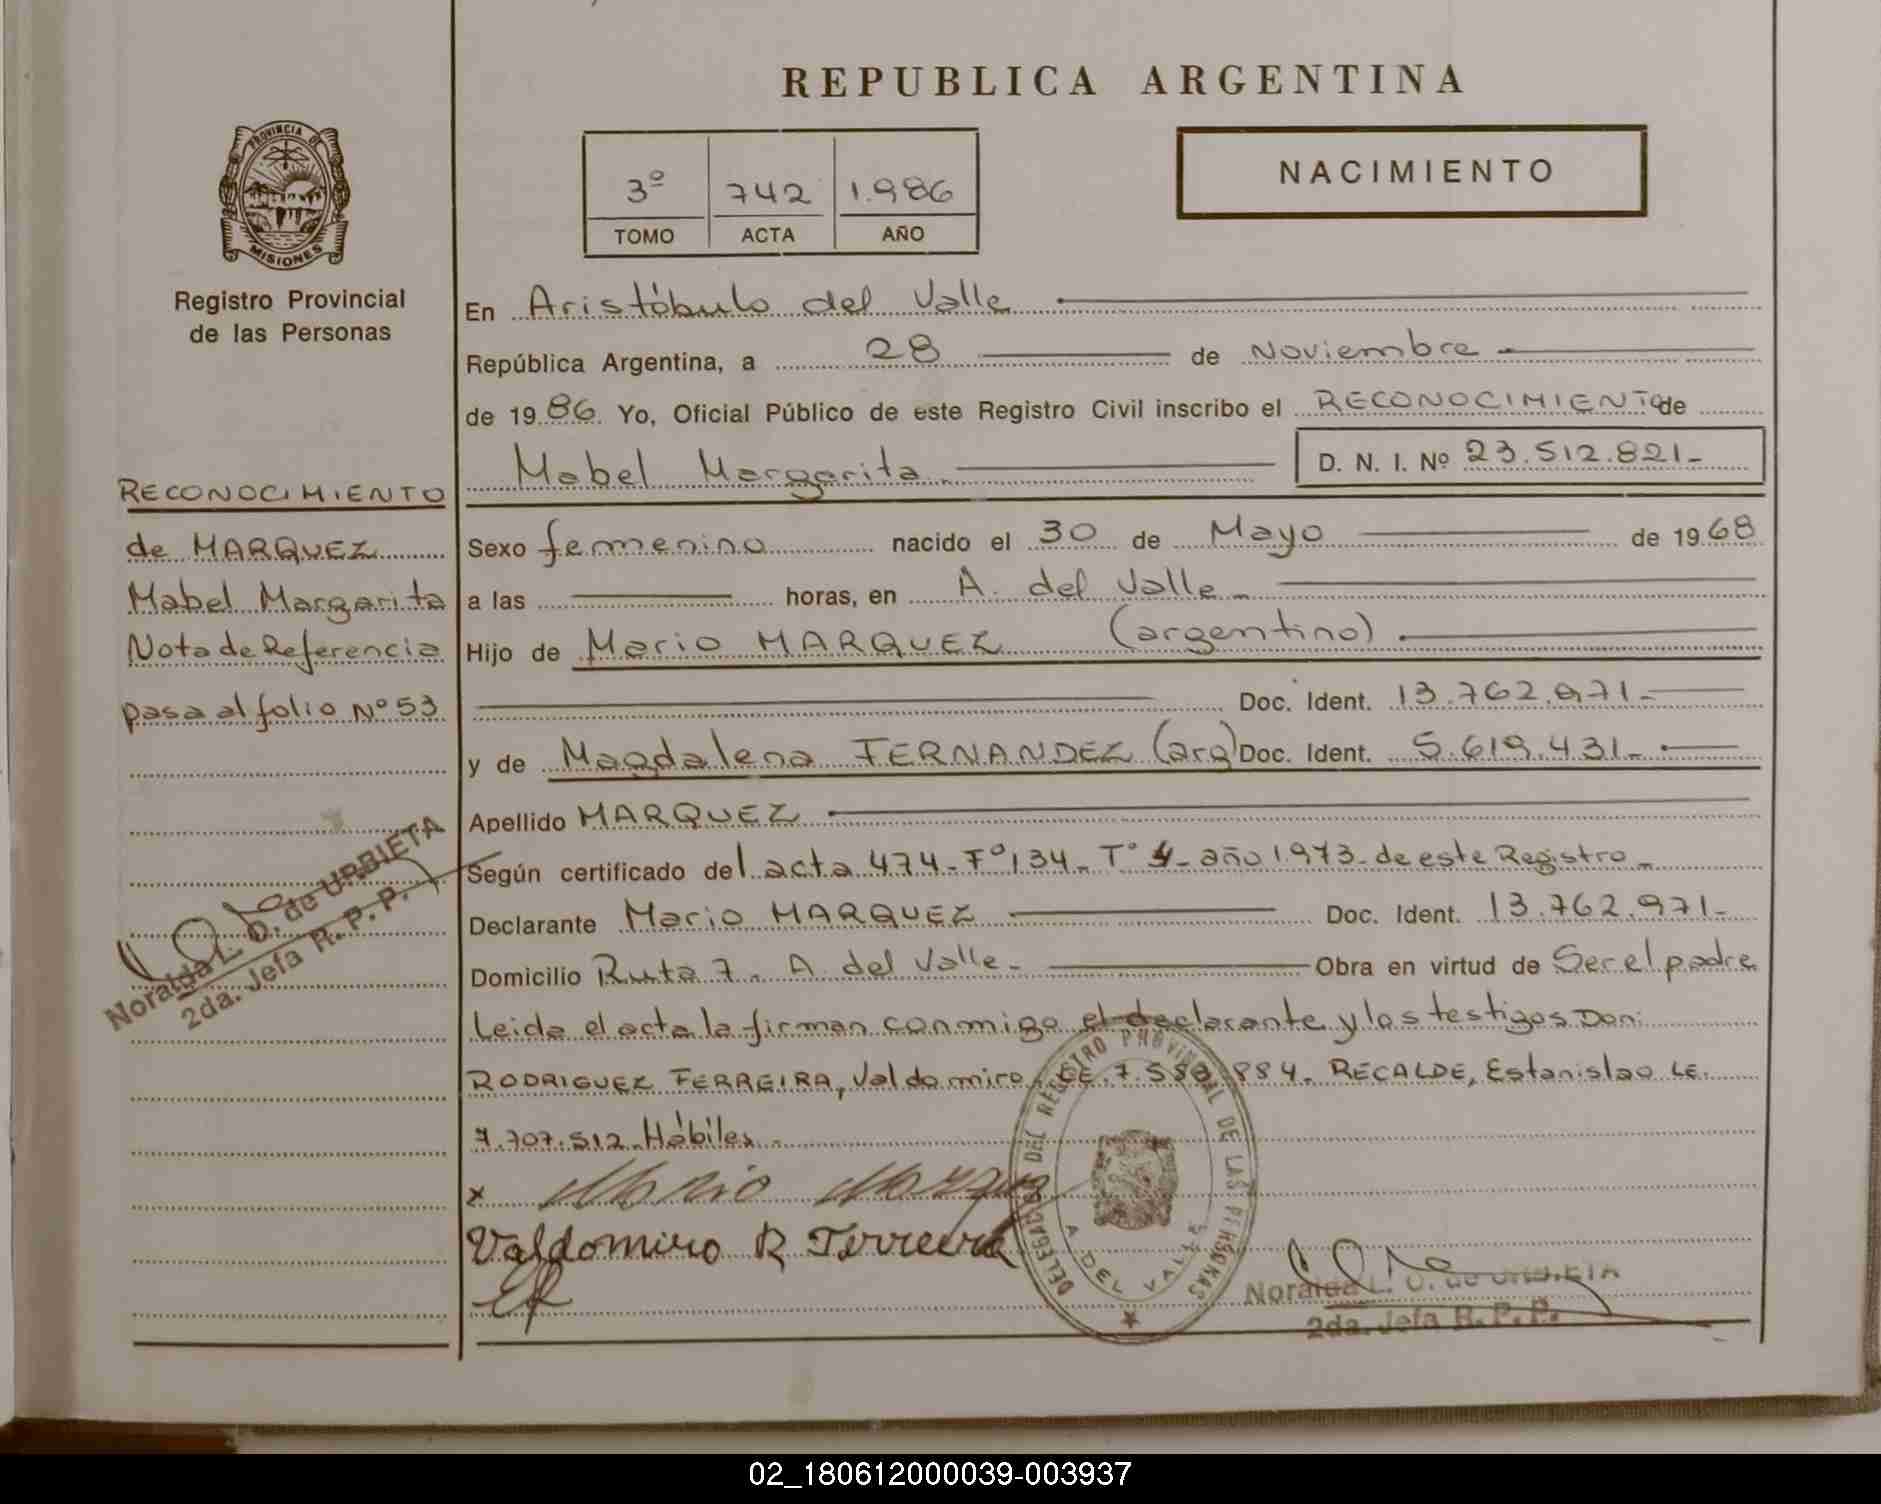 REPUBLICA ARGENTINA
PROVINCIA DE
MISIONES
Registro Provincial
de las Personas
3º 742 1.986
TOMO ACTA AÑO
NACIMIENTO
En Aristóbulo del Valle
República Argentina, a 28 de Noviembre
de 19 86. Yo, Oficial Público de este Registro Civil inscribo el RECONOCIMIENTO de
Mabel Margarita D. N. I. Nº 23.512.821-
Sexo femenino nacido el 30 de Mayo de 19 68
a las horas, en A. del Valle-
Hijo de Mario MARQUEZ (argentino)
Doc. Ident. 13.762.971-
y de Magdalena FERNANDEZ (arg) Doc. Ident. 5.619.431-
Apellido MARQUEZ
Según certificado del acta 474- Fº 134- Tº 4- año 1.973- de este Registro-
Declarante Mario MARQUEZ Doc. Ident. 13.762.971-
Domicilio Ruta 7- A del Valle- Obra en virtud de Ser el padre
Leida el acta la firman conmigo el declarante y los testigos Don:
RODRIGUEZ FERREIRA, Valdomiro, 884. RECALDE, Estanislao LE.
7.707.512- Hábiles-
x Mario Marquez
Valdomiro R Ferreira
RECONOCIMIENTO
de MARQUEZ
Mabel Margarita
Nota de Referencia
pasa al folio Nº 53
Noralda L. O. de URBIETA
2da. Jefa R. P. P.
DELEGACION DEL REGISTRO PROVINCIAL DE LAS PERSONAS
A. DEL VALLE
Noralda L. O. de URBIETA
2da. Jefa R. P. P.
02_180612000039-003937